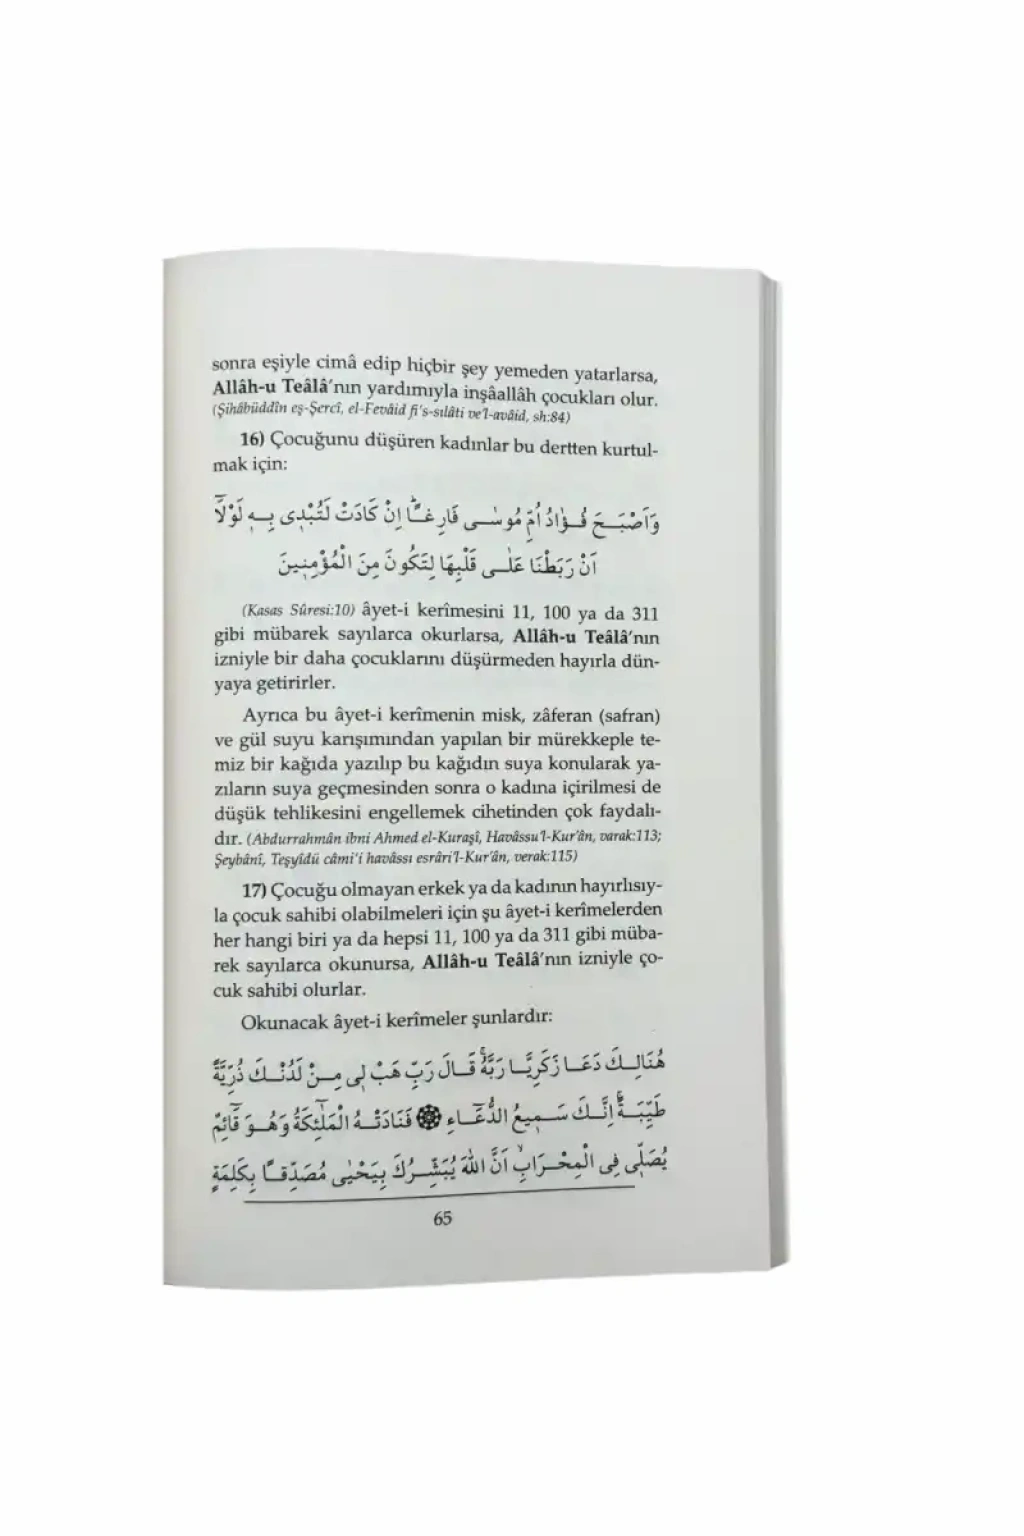 sonra eşiyle cimâ edip hiçbir şey yemeden yatarlarsa,
Allâh-u Teâlâ'nın yardımıyla inşâallâh çocukları olur.
(Şihâbüddîn eş-Şercî, el-Fevâid fi's-sılâti ve'l-avâid, sh:84)
16) Çocuğunu düşüren kadınlar bu dertten kurtul-
mak için:
وَاَصْبَحَ فُؤٰادُ اُمِّ مُوسٰى فَارِغًاۜ اِنْ كَادَتْ لَتُبْد۪ي بِه۪ لَوْلَٓا
اَنْ رَبَطْنَا عَلٰى قَلْبِهَا لِتَكُونَ مِنَ الْمُؤْمِن۪ينَ
(Kasas Sûresi:10) âyet-i kerîmesini 11, 100 ya da 311
gibi mübarek sayılarca okurlarsa, Allâh-u Teâlâ'nın
izniyle bir daha çocuklarını düşürmeden hayırla dün-
yaya getirirler.
Ayrıca bu âyet-i kerîmenin misk, zâferan (safran)
ve gül suyu karışımından yapılan bir mürekkeple te-
miz bir kağıda yazılıp bu kağıdın suya konularak ya-
zıların suya geçmesinden sonra o kadına içirilmesi de
düşük tehlikesini engellemek cihetinden çok faydalı-
dır. (Abdurrahmân ibni Ahmed el-Kuraşî, Havâssu'l-Kur'ân, varak:113;
Şeybânî, Teşyîdü câmi'i havâssı esrâri'l-Kur'ân, verak:115)
17) Çocuğu olmayan erkek ya da kadının hayırlısıy-
la çocuk sahibi olabilmeleri için şu âyet-i kerîmelerden
her hangi biri ya da hepsi 11, 100 ya da 311 gibi müba-
rek sayılarca okunursa, Allâh-u Teâlâ'nın izniyle ço-
cuk sahibi olurlar.
Okunacak âyet-i kerîmeler şunlardır:
هُنَالِكَ دَعَا زَكَرِيَّا رَبَّهُۚ قَالَ رَبِّ هَبْ ل۪ي مِنْ لَدُنْكَ ذُرِّيَّةً
طَيِّبَةًۚ اِنَّكَ سَم۪يعُ الدُّعَٓاءِ ۞ فَنَادَتْهُ الْمَلٰٓئِكَةُ وَهُوَ قَٓائِمٌ
يُصَلّ۪ي فِي الْمِحْرَابِۙ اَنَّ اللّٰهَ يُبَشِّرُكَ بِيَحْيٰى مُصَدِّقًا بِكَلِمَةٍ
65